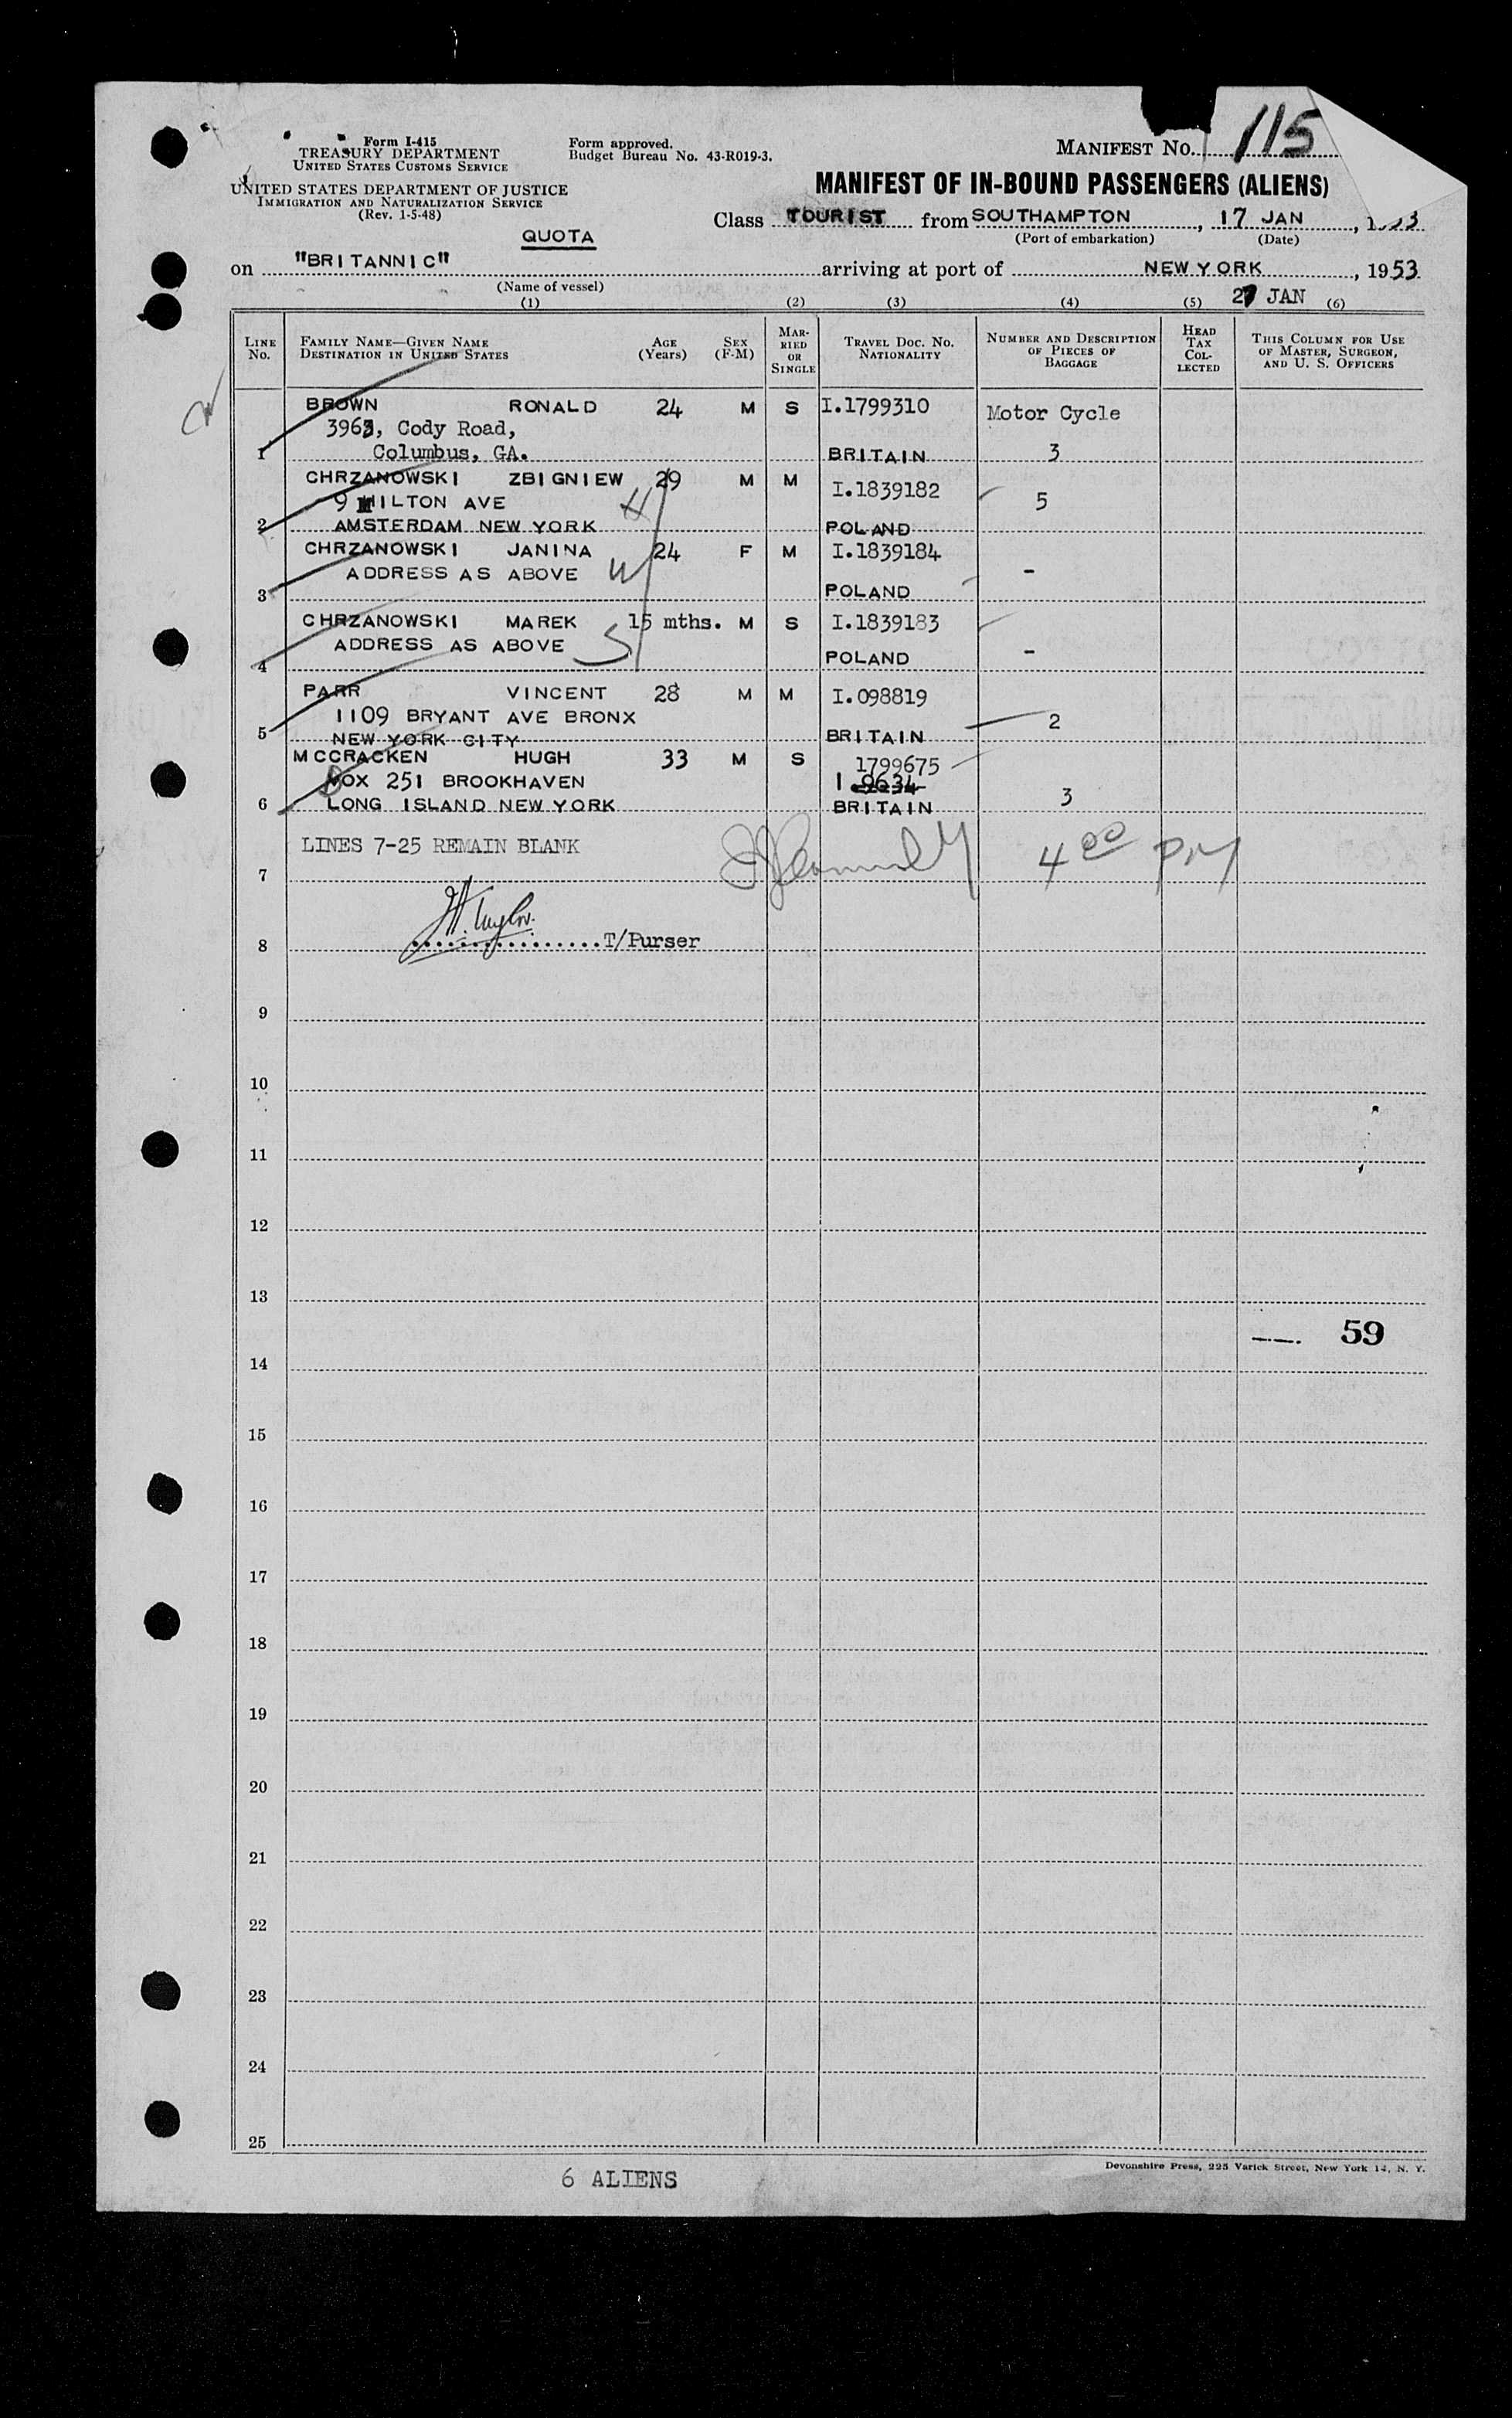 Form I-415
TREASURY DEPARTMENT
UNITED STATES CUSTOMS SERVICE
UNITED STATES DEPARTMENT OF JUSTICE
IMMIGRATION AND NATURALIZATION SERVICE
(Rev. 1-5-48)
Form approved.
Budget Bureau No. 43-R019-3.
MANIFEST No. 115
MANIFEST OF IN-BOUND PASSENGERS (ALIENS)
Class TOURIST from SOUTHAMPTON, 17 JAN, 1953
(Port of embarkation) (Date)
QUOTA
on "BRITANNIC" arriving at port of NEW YORK, 1953
(Name of vessel)
JAN
(1) (2) (3) (4) (5) (6)
LINE No. FAMILY NAME—GIVEN NAME DESTINATION IN UNITED STATES AGE (Years) SEX (F-M) MARRIED OR SINGLE TRAVEL DOC. NO. NATIONALITY NUMBER AND DESCRIPTION OF PIECES OF BAGGAGE HEAD TAX COLLECTED THIS COLUMN FOR USE OF MASTER, SURGEON, AND U. S. OFFICERS
BROWN RONALD 24 M S I.1799310 Motor Cycle
3963, Cody Road,
1 Columbus, GA. BRITAIN 3
CHRZANOWSKI ZBIGNIEW 29 M M I.1839182
9 HILTON AVE H 5
2 AMSTERDAM NEW YORK POLAND
CHRZANOWSKI JANINA 24 F M I.1839184
ADDRESS AS ABOVE W -
3 POLAND
CHRZANOWSKI MAREK 15 mths. M S I.1839183
ADDRESS AS ABOVE S -
4 POLAND
PARR VINCENT 28 M M I.098819
1109 BRYANT AVE BRONX 2
5 NEW YORK CITY BRITAIN
MCCRACKEN HUGH 33 M S 1799675
BOX 251 BROOKHAVEN I 9634
6 LONG ISLAND NEW YORK BRITAIN 3
LINES 7-25 REMAIN BLANK
4 00 PM
7
8 T/Purser
9
10
11
12
13
59
14
15
16
17
18
19
20
21
22
23
24
25
Devonshire Press, 225 Varick Street, New York 14, N. Y.
6 ALIENS